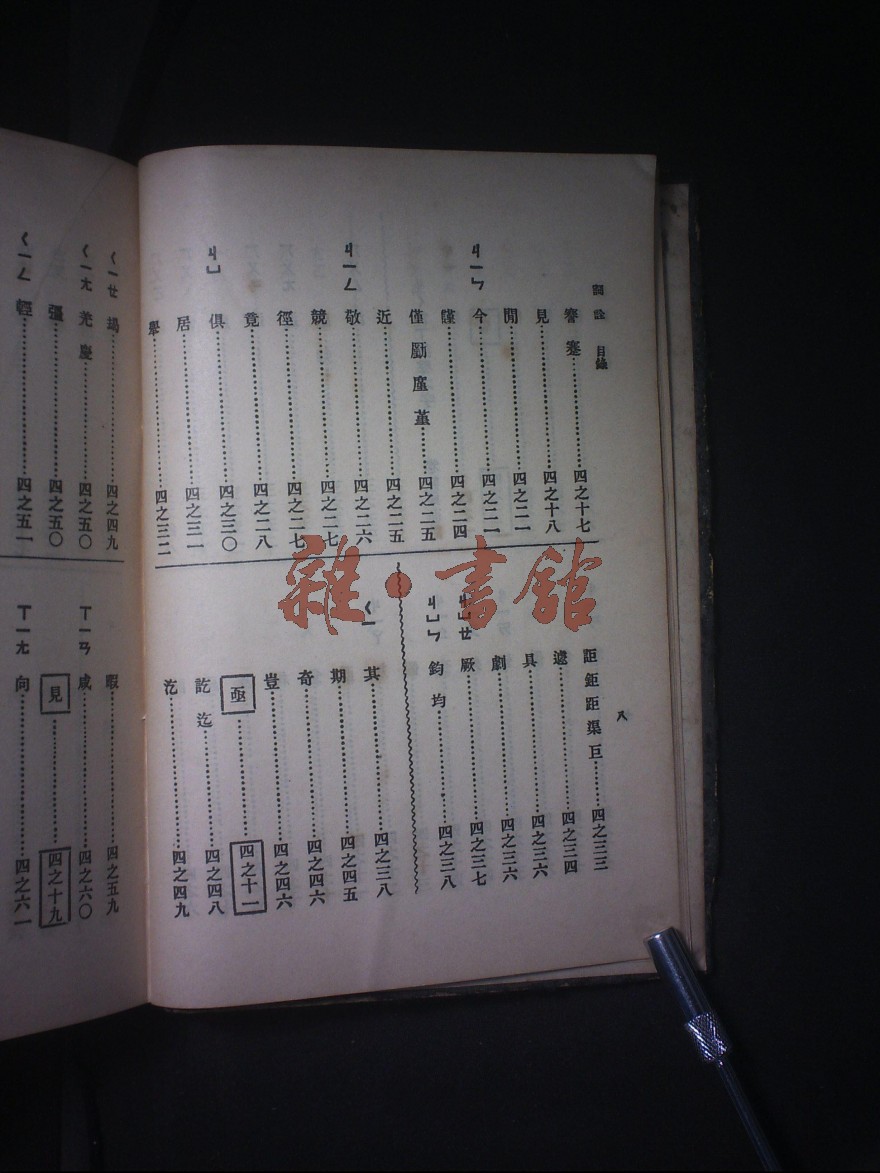 詞詮 目錄
謇 蹇 四之十七
見 四之十八
閒 四之二一
ㄐㄧㄣ 今 四之二一
謹 四之二四
僅 廑 堇 四之二五
近 四之二五
ㄐㄧㄥ 敬 四之二六
競 四之二七
徑 四之二七
竟 四之二八
ㄐㄩ 俱 四之三〇
居 四之三一
舉 四之三二
詎 鉅 距 渠 巨 四之三三
遽 四之三四
具 四之三六
劇 四之三六
ㄐㄩㄝ 厥 四之三七
ㄐㄩㄣ 鈞 均 四之三八
ㄑㄧ 其 四之三八
期 四之四五
奇 四之四六
豈 四之四六
亟 四之十一
訖 迄 四之四八
汔 四之四九
八
ㄑㄧㄝ 朅 四之四九
ㄑㄧㄤ 羌 慶 四之五〇
彊 四之五〇
ㄑㄧㄥ 輕 四之五一
暇 四之五九
ㄒㄧㄢ 咸 四之六〇
見 四之十九
ㄒㄧㄤ 向 四之六一
雜·書館